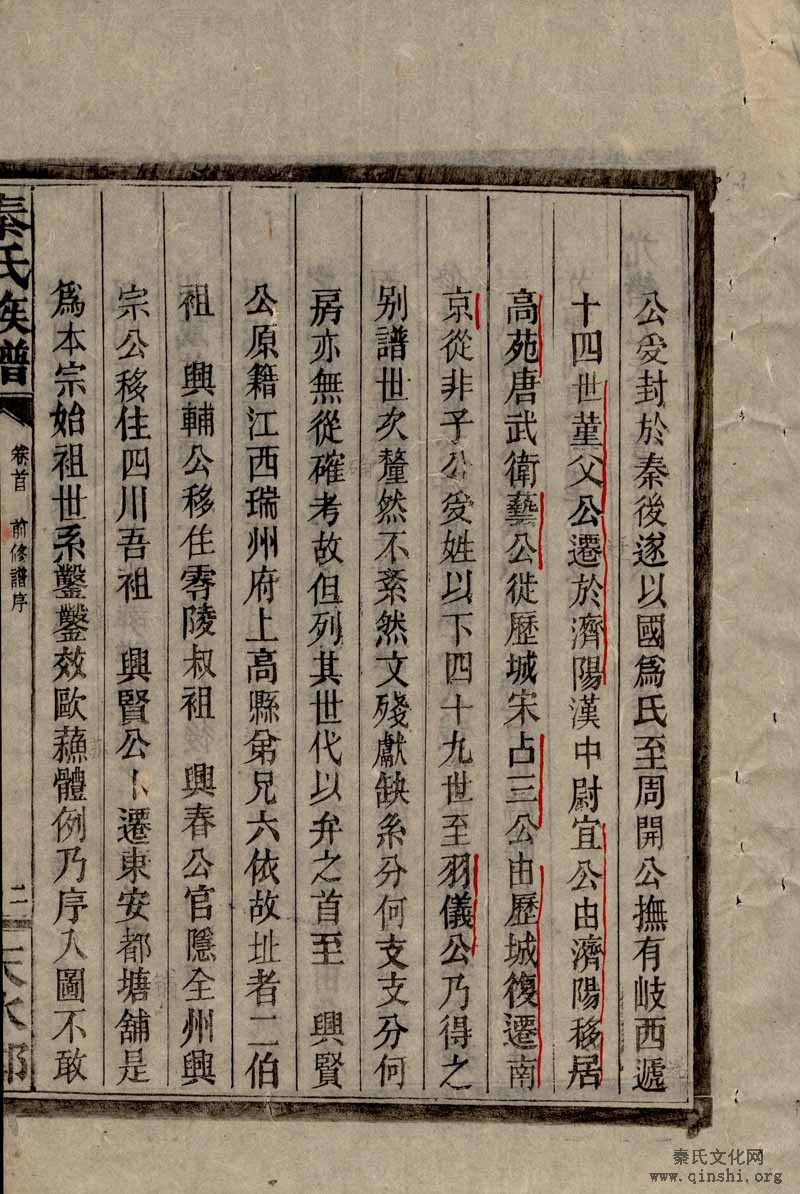 公受封於秦後遂以國為氏至周開公撫有岐西遞
十四世菫父公遷於濟陽漢中尉宜公由濟陽移居
高苑唐武衛藝公徙歷城宋占三公由歷城復遷南
京從非子公受姓以下四十九世至羽儀公乃得之
別譜世次釐然不紊然文殘獻缺系分何支支分何
房亦無從確考故但列其世代以弁之首至 興賢
公原籍江西瑞州府上高縣弟兄六依故址者二伯
祖 興輔公移住零陵叔祖 興春公官隱全州興
宗公移住四川吾祖 興賢公卜遷東安都塘舖是
為本宗始祖世系鑿鑿效歐蘓體例乃序入圖不敢
秦氏族譜 卷首 前修譜序 二 天水郡
秦氏文化网
www.qinshi.org